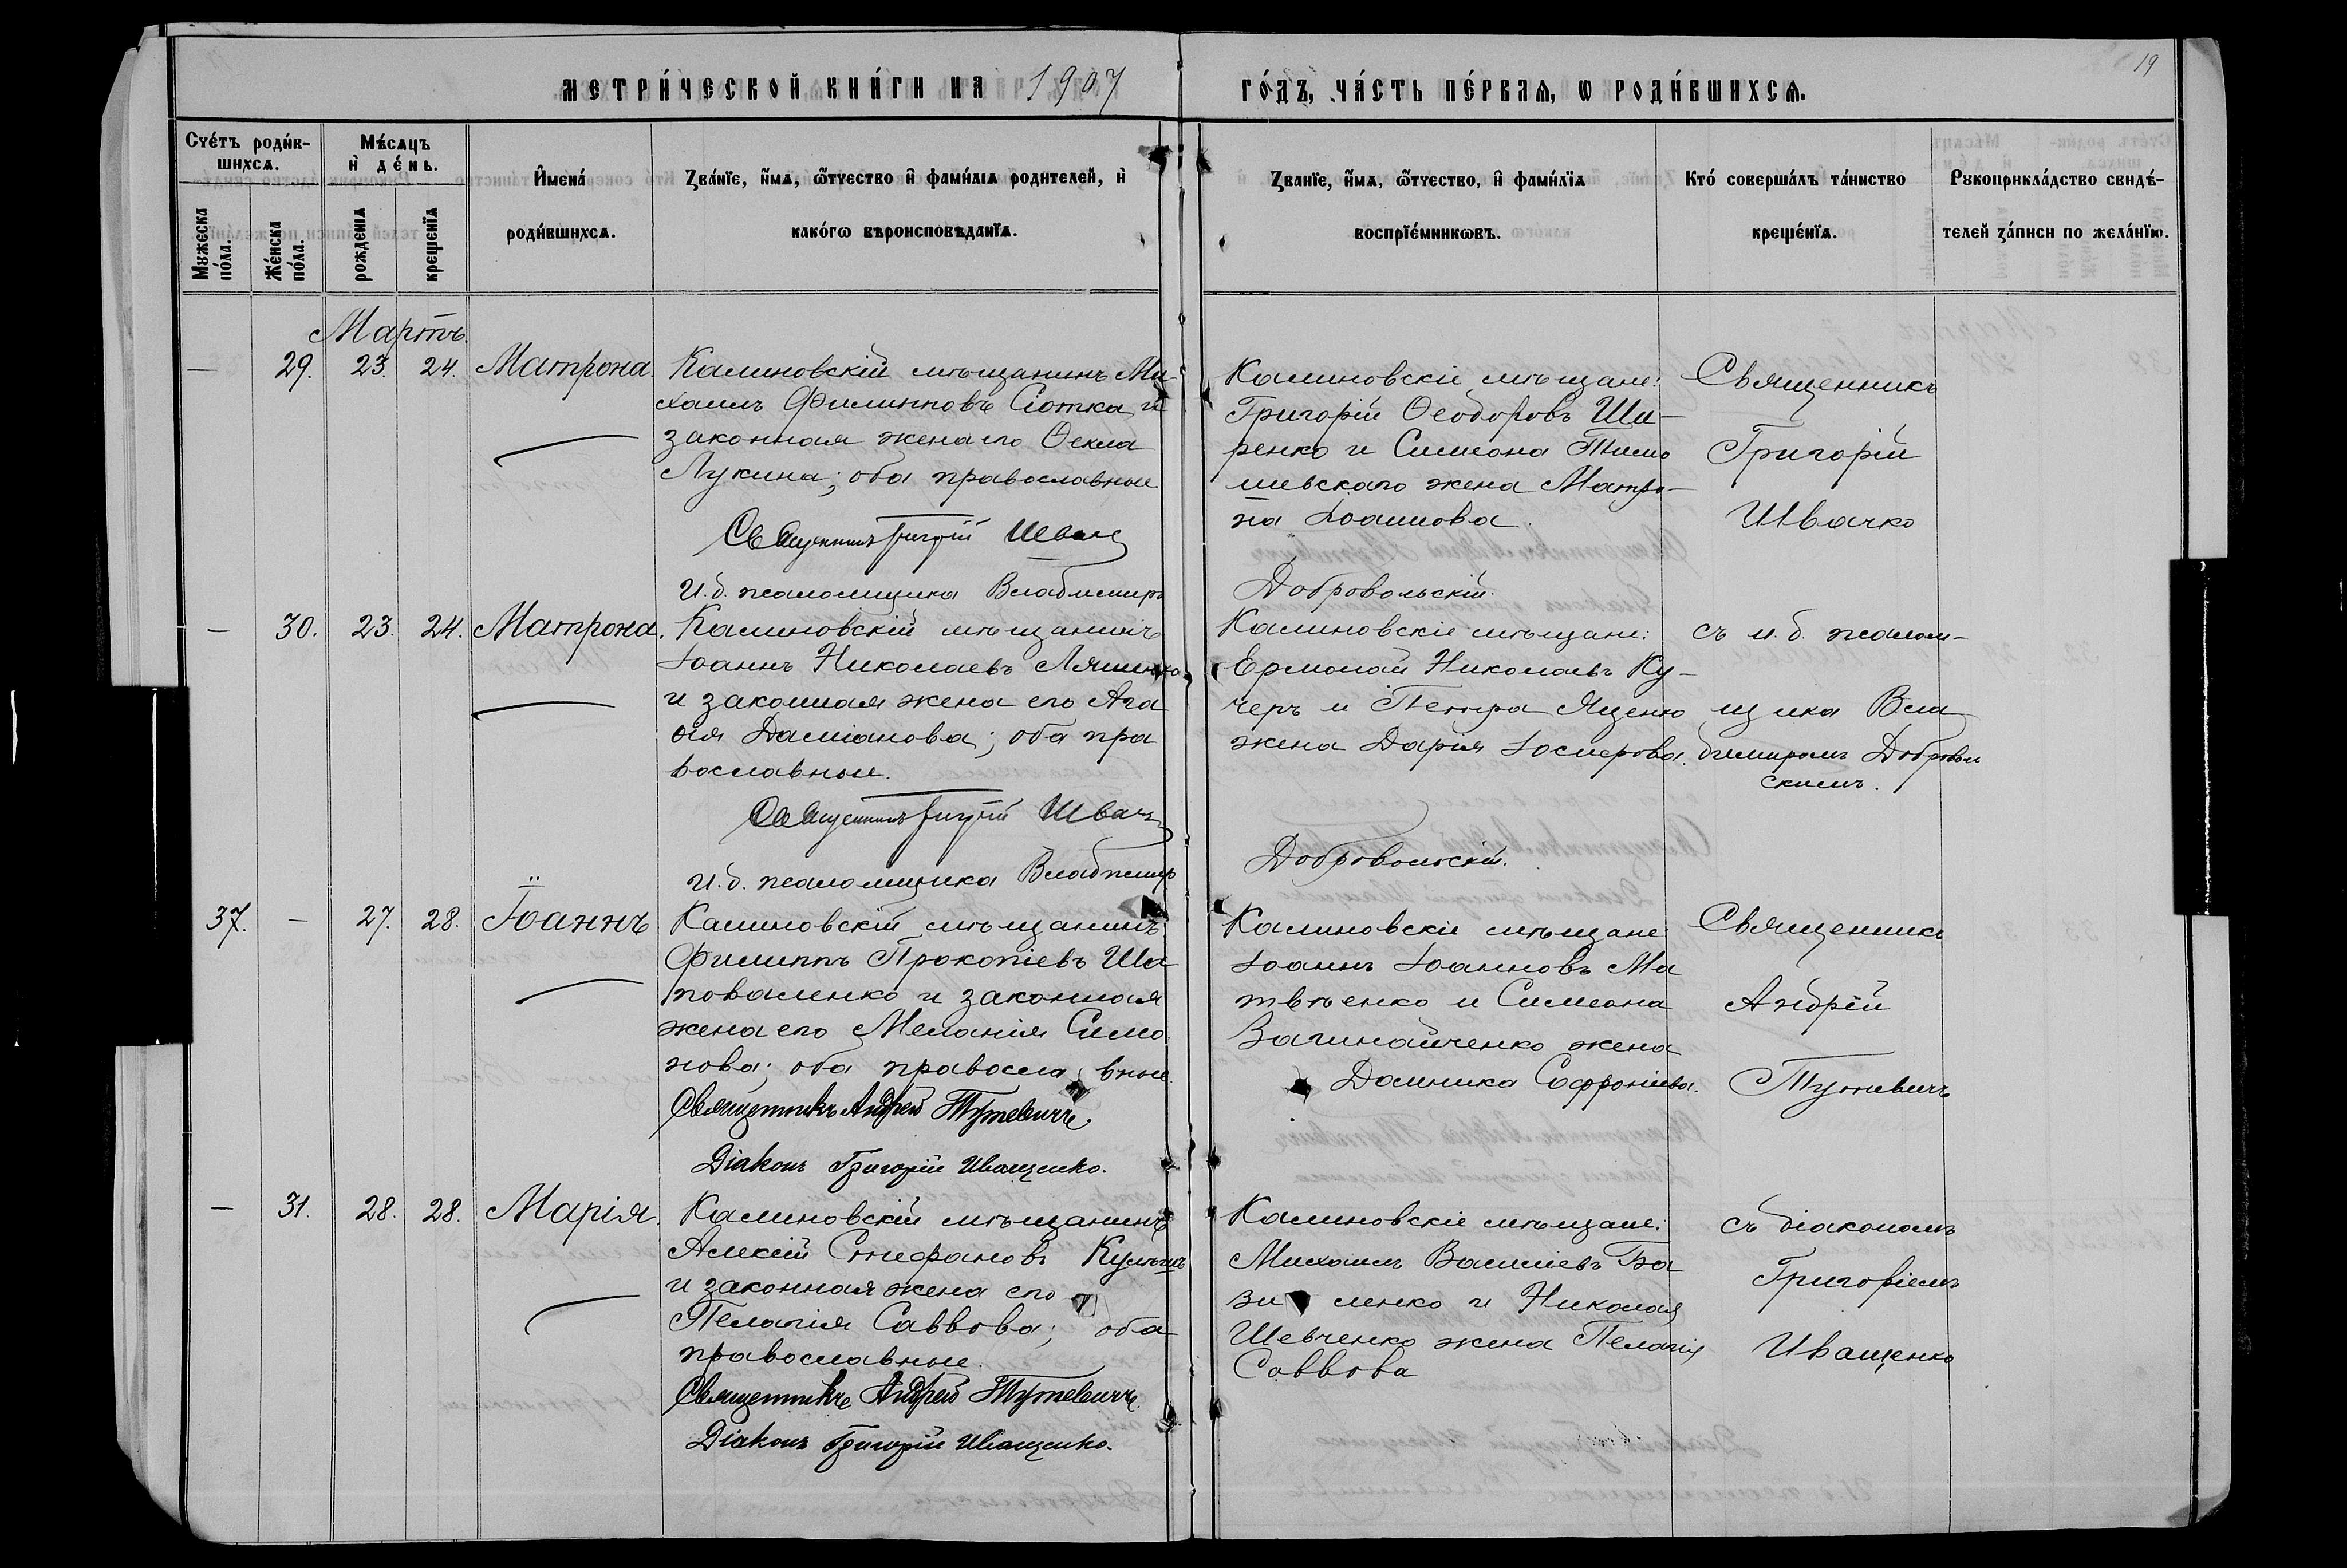 МЕТРИ́ЧЕСКОЙ КНИ́ГИ НА 1907
ГО́ДЪ, ЧА́СТЬ ПЕ́РВАѦ, Ѡ РОДИ́ВШИХСѦ.
19
Сче́тъ роди́в-
шихсѧ.
Мѣ́сѧцъ
и҆ де́нь.
Мꙋжеска
по́ла.
Же́нска
по́ла.
рожденїѧ
крещенїѧ
И҆мена́
роди́вшихсѧ.
Зва́нїе, и҆́мѧ, ѻ҆́тчество и҆ фами́лїѧ родителей, и҆
како́гѡ вѣроисповѣданїѧ.
Званїе, и҆́мѧ, ѻ҆́тчество, и҆ фами́лїѧ
воспрїе́мникѡвъ.
Кто́ соверша́лъ та́инство
креще́нїѧ.
Рꙋкоприкла́дство свидѣ́-
телей за́писи по жела́нїю.
Мартъ.
— 29. 23. 24. Матрона.
Калиновскій мѣщанинъ Ми-
хаилъ Филипповъ Сіотка и
законная жена его Ѳекла
Лукина; оба православные
Священникъ Григорій Швачко
И. д. псаломщика Владиміръ
Калиновскіе мѣщане:
Григорій Ѳеодоровъ Ши-
ренко и Симеона Тимо
шевскаго жена Матро-
на Іоаннова.
Добровольскій.
Священникъ
Григорій
Швачко
— 30. 23. 24. Матрона.
Калиновскій мѣщанинъ
Іоаннъ Николаевъ Ляшенко
и законная жена его Ага
ѳія Даміанова; оба пра
вославные.
Священникъ Григорій Швачко
И. д. псаломщика Владиміръ
Калиновскіе мѣщане:
Ермолай Николаевъ Ку-
черъ и Петра Яценко
жена Дарія Іосифова.
Добровольскій.
съ и. д. псалом-
щика Вла
диміромъ Добровол
скимъ.
37. — 27. 28. Іоаннъ
Калиновскій мѣщанинъ
Филиппъ Прокопіевъ Ша
поваленко и законная
жена его Меланія Симо
нова; оба православные.
Священникъ Андрей Тутевичъ.
Діаконъ Григорій Иващенко.
Калиновскіе мѣщане:
Іоаннъ Іоанновъ Ма
твѣенко и Симеона
Загинайченко жена
Домника Софроніева.
Священникъ
Андрей
Тутевичъ
— 31. 28. 28. Марія.
Калиновскій мѣщанинъ
Алексій Стефановъ
и законная жена его
Пелагія Саввова; оба
православные.
Священникъ Андрей Тутевичъ.
Діаконъ Григорій Иващенко.
Калиновскіе мѣщане:
Михаилъ Василіевъ Ба
зиленко и Николая
Шевченко жена Пелагія
Саввова
съ діакономъ
Григоріемъ
Иващенко